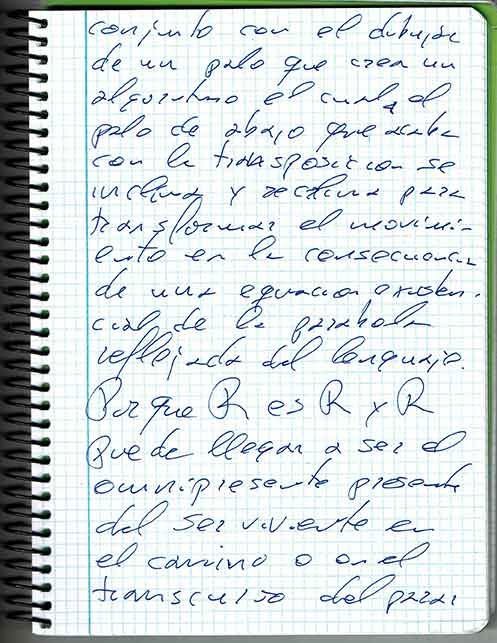 conjunto con el dibujar
de un palo que crea un
algoritmo el cual, el
palo de abajo que acaba
con la trasposicion se
inclina y reclina para
transformar el movimi-
ento en la consecuencia
de una equacion existen-
cial de la parabola
reflejada del lenguaje.
Porque R es R y R
puede llegar a ser el
omnipresente presente
del ser viviente en
el camino o en el
transcurso del parar